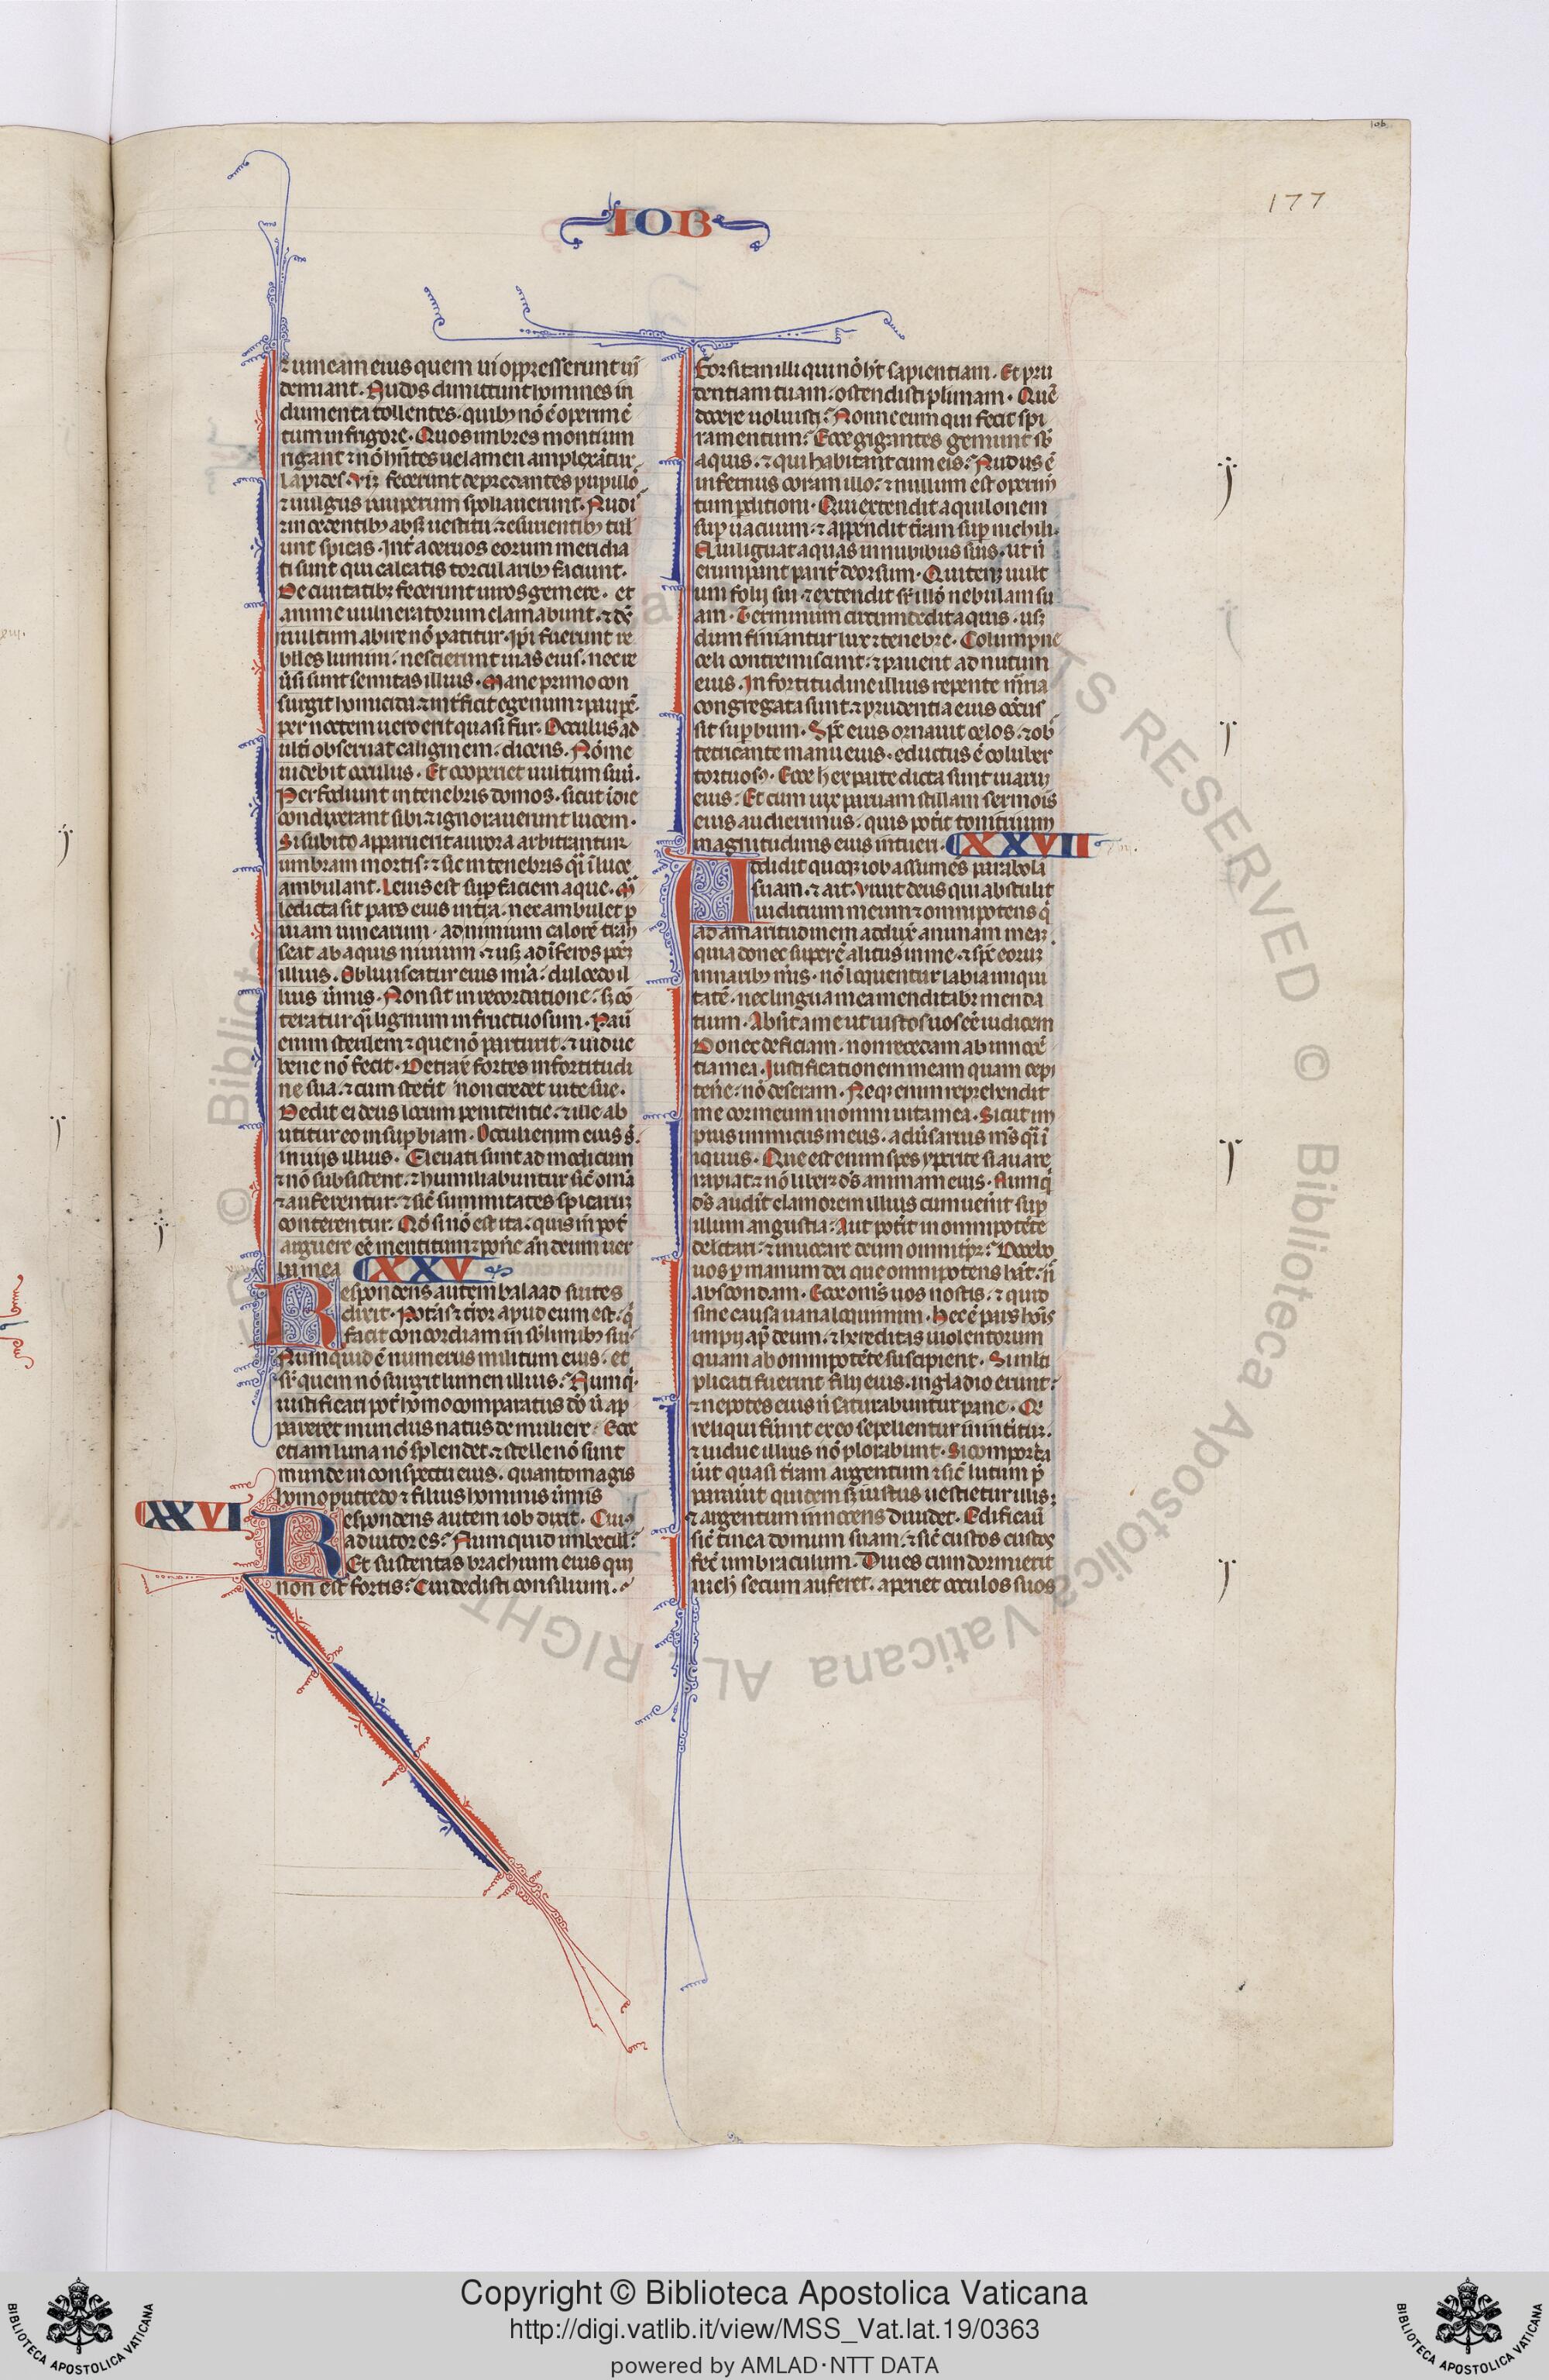 IOB
177
⁊ uineam eius quem ui oppresserunt uī
demiant. Nudos dimittunt homines in
dumenta tollentes. quibꝫ nō ē operimē
tum in frigore. Quos imbres montium
rigant ⁊ nō hn̄tes uelamen amplexātur
lapides. Vim fecerunt depredantes pupillo
⁊ uulgus pauperum spoliauerunt. Nudi
⁊ incedentibꝫ absqꝫ uestitu ⁊ esurientibꝫ tul
erunt spicas. Int̄ aceruos eorum meridia
ti sunt qui calcatis torcularibꝫ sitiunt.
De ciuitatibꝫ fecerunt uiros gemere. et
anime uulneratorum clamabunt. ⁊ dē
inultum abire nō patitur. Ip̄i fuerunt re
belles lumini. nescierunt uias eius. nec re
ūsi sunt semitas illius. Mane primo con
surgit homicida ⁊ int̄ficit egenum ⁊ paupē.
per noctem uero erit quasi fur. Occulus ad
ulti̇ obseruat caliginem. dicens. Nō me
uidebit occulus. Et cooperiet uultum suū.
Perfodiunt in tenebris domos. sicut ī die
condixerant sibi ⁊ ignorauerunt lucem.
Si subito apparuerit aurora arbitrantur
umbram mortis. ⁊ sic in tenebris q̄i ī luce
ambulant. Leuis est sup̄ faciem aque. Ma
ledicta sit pars eius in t̄ra. nec ambulet p̄
uiam uinearum. ad nimium calorē trās
eat ab aquis niuium. ⁊ usqꝫ ad īferos pc̄m
illius. Obliuiscatur eius mīa. dulcedo il
lius ūmis. Non sit in recordatione. sꝫ cō
teratur q̄i lignum infructuosum. Pauit
enim sterilem ⁊ que nō parturit. ⁊ uidue
bene nō fecit. Detraxit fortes in fortitudi
ne sua. ⁊ cum stetit non credet uite sue.
Dedit ei deus locum penitentie. ⁊ ille ab
utitur eo in sup̄biam. Occuli enim eius s̄.
in uiis illius. Eleuati sunt ad modicum
⁊ nō subsistent. ⁊ humiliabuntur sic̄ omīa
⁊ auferentur. ⁊ sic̄ summitates spicarum
conterentur. Qd̄ si nō est ita. quis me pot̄
arguere eē mentitum ⁊ pone an̄ deum uer
ba mea XXV
Respondens autem baldad suites
dixit. Potestas ⁊ tror apud eum est. q̄
facit concordiam in sublimibꝫ suis
Numquid ē numerus militum eius. et
sr̄ quem nō surgit lumen illius. Numq̄
iustificari pot̄ homo comparatus dō ū ap
pareret mundus natus de muliere. Ecce
etiam luna nō splendet. ⁊ stelle nō sunt
munde in conspectu eius. quanto magis
homo putredo ⁊ filius hominis ūmis
XXVI
Respondens autem iob dixit. Cuiꝰ
adiutor es. Numquid imbecill.
Et sustentas brachium eius qui
non est fortis. Cui dedisti consilium.
Forsitan illi qui nō ht̄ sapientiam. Et pru
dentiam tuam. ostendisti plimam. Quē
docere uoluisti. Nonne eum qui fecit spi
ramentum. Ecce gigantes gemunt sb̄
aquis. ⁊ qui habitant cum eis. Nudus ē
infernus coram illo. ⁊ nullum est operim
tum p̄ditioni. Qui extendit aquilonem
sup̄ uacuum. ⁊ appendit t̄ram sup̄ nichili.
Qui ligat aquas in nubibus suis. ut n̄
erumpant parit̄ deorsum. Qui tenꝫ uult
um solij sui. ⁊ extendit sr̄ illd̄ nebulam su
am. Terminum circumdedit aquis. usqꝫ
dum finiantur lux ⁊ tenebre. Columpne
celi contremiscunt. ⁊ pauent ad nutum
eius. In fortitudine illius repente maria
congregata sunt ⁊ prudentia eius ꝑcus
sit sup̄bum. Sp̄c eius ornauit celos. ⁊ ob
tetricante manu eius. eductus ē coluber
tortuosꝰ. Ecce h̄ ex parte dicta sunt uiarum
eius. Et cum uix paruam stillam sermōis
eius audierimus. quis pot̄it tonitruum
magnitudinis eius intueri. XXVII
Addidit quoqꝫ iob assumēs parabolā
suam. ⁊ ait. Viuit deus qui abstulit
iudicium meum ⁊ omnipotens q̄
ad amaritudinem adduxit animam meaꝫ.
quia donec superē alitus in me. ⁊ sp̄c eorum
in naribꝫ m̄is. nō loquentur labia iniqui
tatē. nec lingua mea meditabr̄ menda
tium. Absit a me ut iustos uos eē iudicem
Donec deficiam. non recedam ab innocē
tia mea. Justificationem meam quam cepi
tenē. nō deseram. Neqꝫ enim reprehendit
me cor meum in omni uita mea. Sicut im
pius inimicus meus. aduūsarius m̄s q̄i ī
iquus. Que est enim spes ypocrite si auare
rapiat ⁊ nō liberꝫ d̄s animam eius. Numq̄
d̄s audiet clamorem illius cum uen̄it sup̄
illum angustia. Aut pot̄it in omnipotēte
delectari. ⁊ inuocare deum omni tp̄r. Docebo
uos p̄ manum dei que omnipotens habt̄. n̄
abscondam. Ecce om̄s uos nostis. ⁊ quid
sine causa uana loquimini. Hec ē pars hoīs
impij ap̄ deum. ⁊ hereditas uiolentorum
quam ab omnipotēte suscipient. Si multi
plicati fuerint filij eius. in gladio erunt.
⁊ nepotes eius n̄ saturabuntur pane. Qi
reliqui fūint ex eo sepelientur in int̄itu.
⁊ uidue illius nō plorabunt. Si comporta
ūit quasi t̄ram argentum ⁊ sic̄ lutum p̄
parauit quidem sꝫ iustus uestietur illis.
⁊ argentum innocens diuidet. Edificauit
sic̄ tinea domum suam. ⁊ sic̄ custos custos
fec̄ umbraculum. Diues cum dormierit
nich̄ secum auferet. aperiet occulos suos
Copyright © Biblioteca Apostolica Vaticana
http://digi.vatlib.it/view/MSS_Vat.lat.19/0363
powered by AMLAD·NTT DATA
BIBLIOTECA APOSTOLICA VATICANA
BIBLIOTECA APOSTOLICA VATICANA